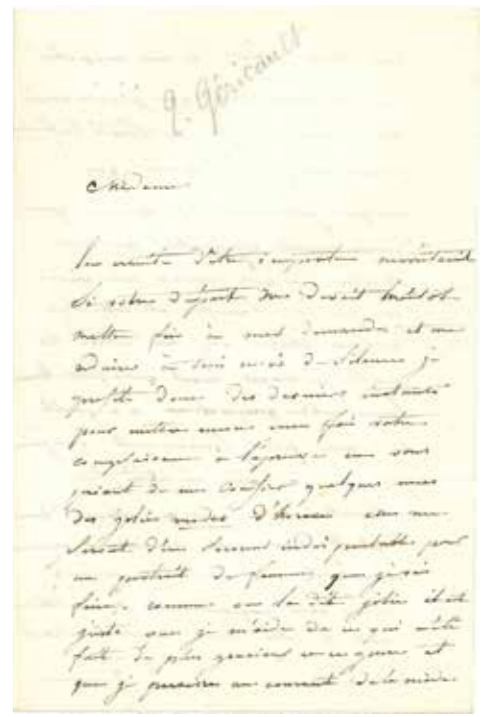 q. Géricault
Madame
la crainte d'être importun m'arrêterait
si votre départ ne devait bientôt
mettre fin à mes demandes et me
réduire à six mois de silence je
profite donc des derniers instants
pour mettre encore une fois votre
complaisance à l'épreuve en vous
priant de me confier quelques unes
des jolies modes d'horace elles me
seront d'un secours indispensable pour
un portrait de femme que je vais
faire, comme on la dit jolie il est
juste que je m'aide de ce qui a été
fait de plus gracieux en ce genre et
que je paraisse au courant de la mode